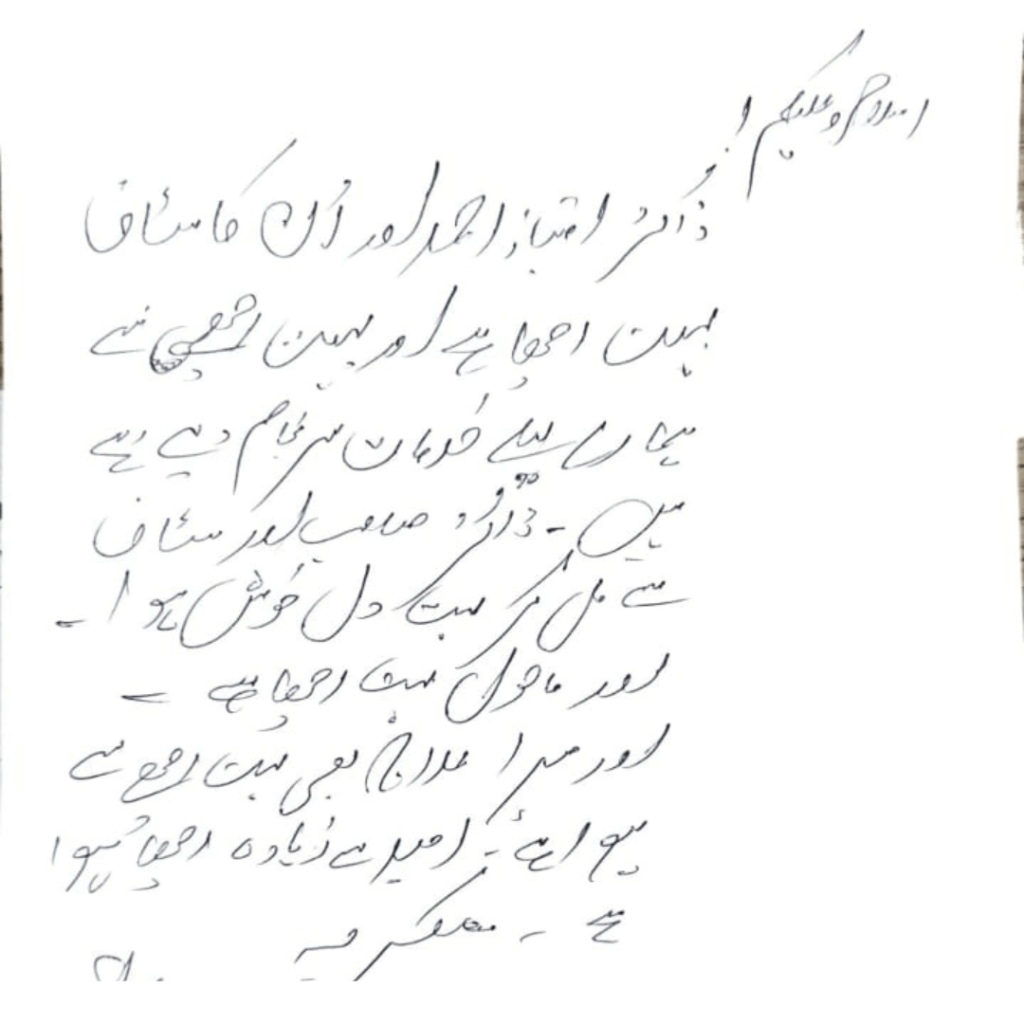 اسلام و علیکم !
ڈاکٹر امتیاز احمد اور اُن کا سٹاف
بہت اچھا ہے اور بہت اچھے سے
ہمارے لیے خدمات سرانجام دے رہے
ہیں ۔ ڈاکٹر صاحب اور سٹاف
سے مل کر بہت دل خوش ہوا ۔
اور ماحول بہت اچھا ہے ۔
اور میرا علاج بھی بہت اچھے سے
ہوا ہے ۔ امید سے زیادہ اچھا ہوا
ہے ۔ شکریہ